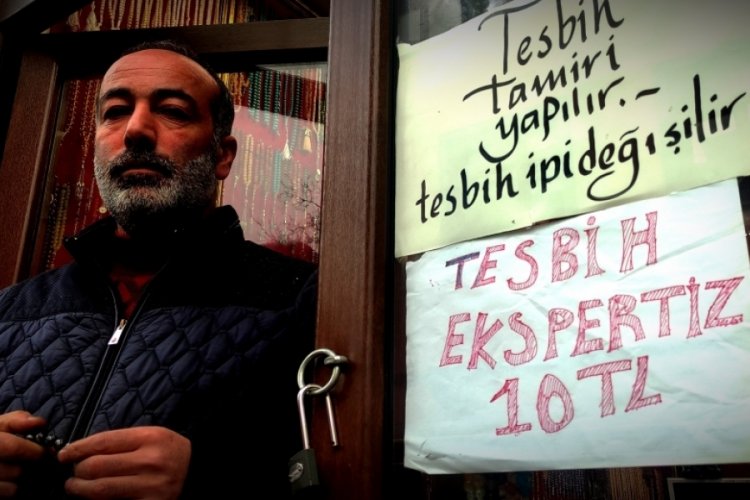 Tesbih
tamiri
yapılır.-
tesbih ipi değişilir
TESBİH
EKSPERTİZ
10TL